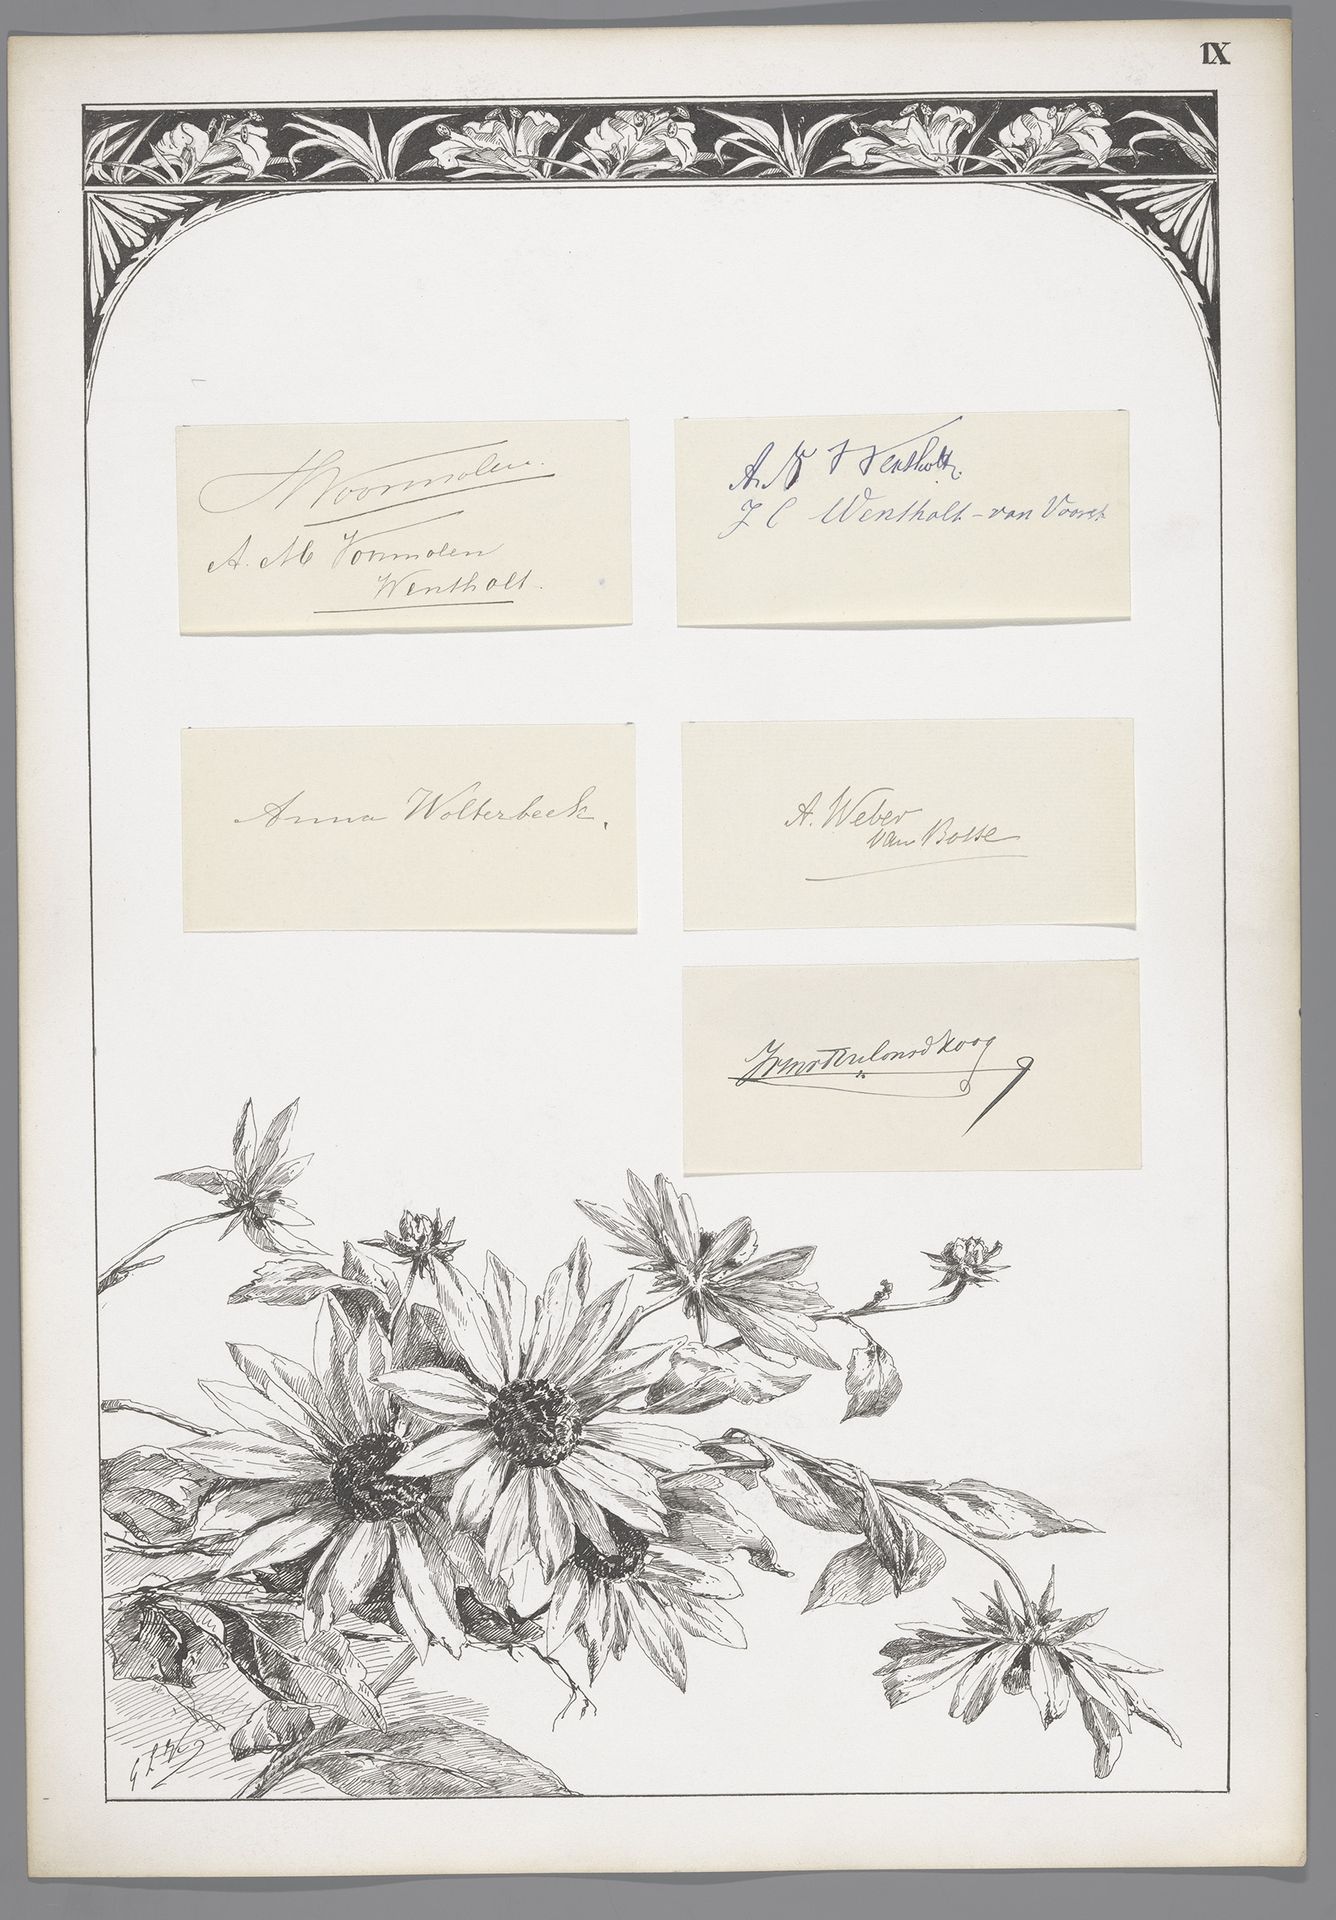 IX
JVoormolen.
A. M Voormolen
Wentholt.
A. N Wentholt.
J C Wentholt - van Voorst
Anna Wolterbeek.
A. Weber
van Bosse